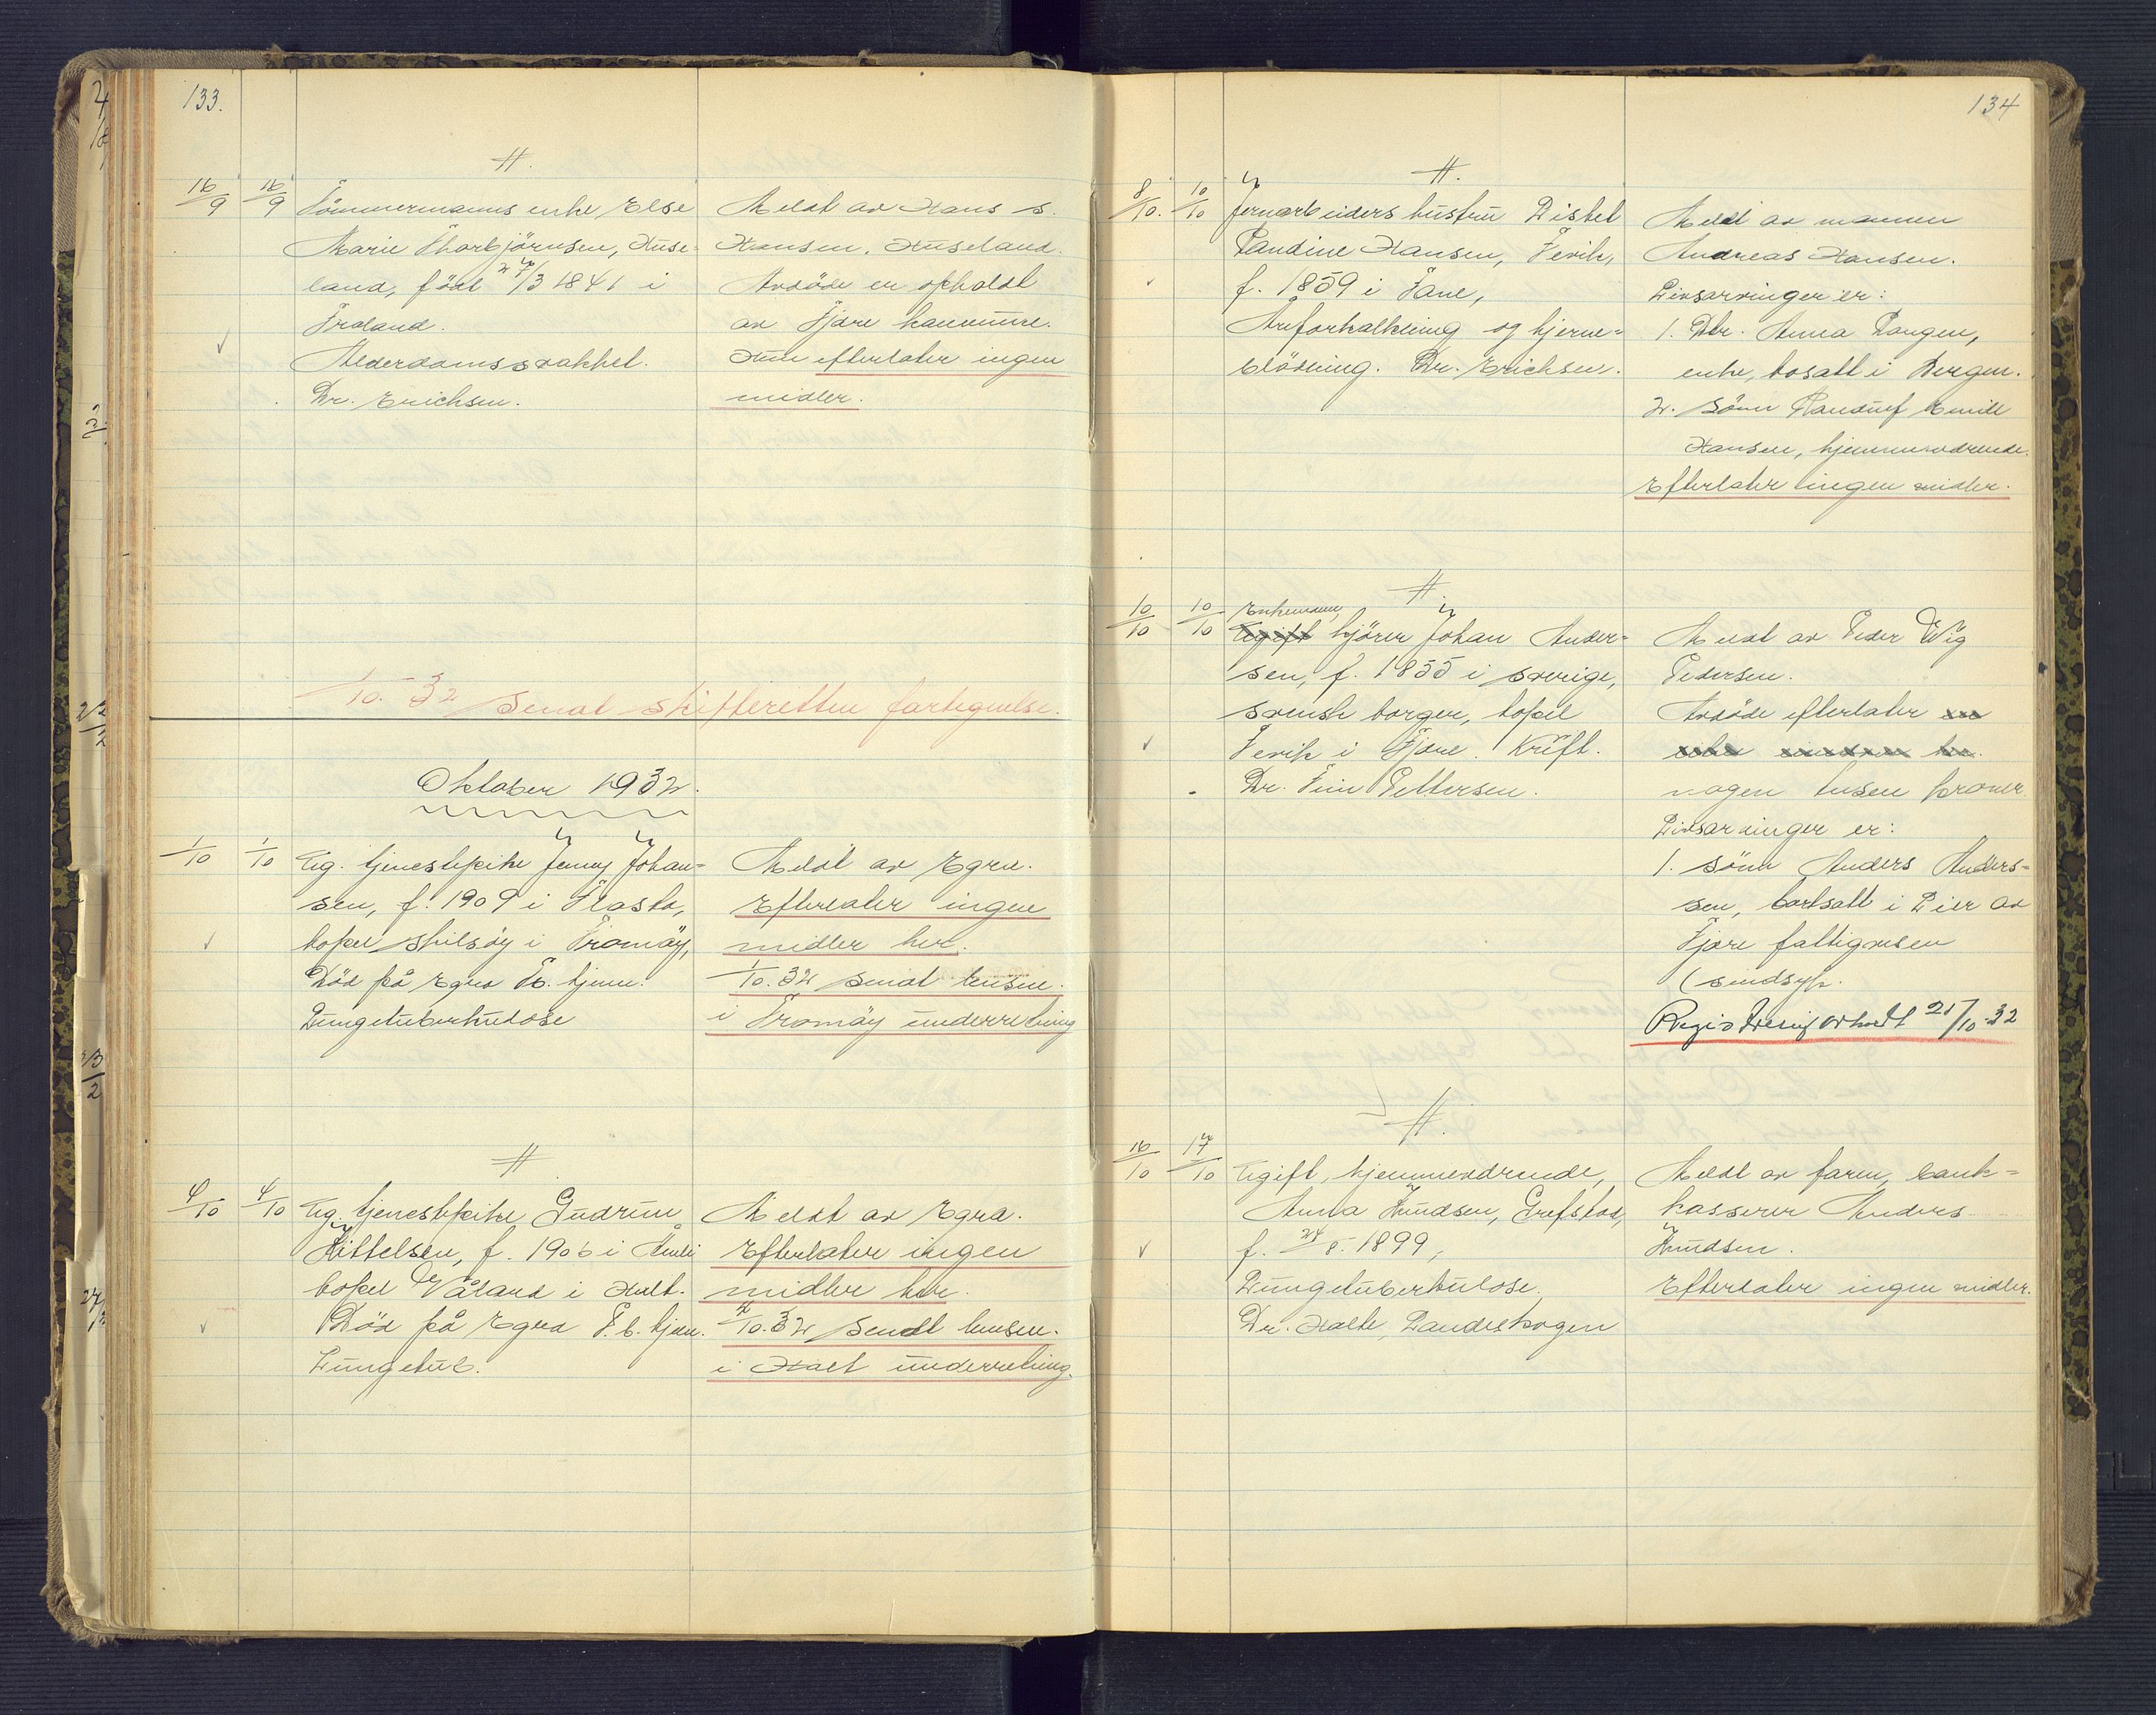 133.
H.
16/9 16/9 Tömmermanns enke Else
Marie Thorbjörnsen, Huse-
land, född 27/3 1841 i
Froland.
Alderdomssvakhet.
Dr. Erichsen.
Meldt av Hans S.
Hansen, Huseland.
Avdöde er opholdt
av Fjære kommune.
Hun efterlater ingen
midler.
1/10. 32 Sendt skifteretten fortegnelse.
Oktober 1932.
1/10 1/10 Ug. tjenestepike Jenny Johan-
sen, f. 1909 i
bopel Skilsöy i Tromöy,
Död på Egra Tb. hjem.
Lungetuberkulose
Meldt av Egra.
Efterlater ingen
midler her.
1/10. 32 sendt lensm.
i Tromöy underretning
H.
4/10 4/10 Ug. tjenestepike Gudrun
Kittelsen, f. 1906 i Åmli
bopel Våland i Holt.
Död på Egra T.b. hjem.
Lungetub.
Meldt av Egra.
Efterlater ingen
midler her.
4/10. 32 Sendt lensm.
i Holt underretning.
134
H.
8/10. 10/10 Jernarbeiders hustru Lisbet
Tandine Hansen, Fevik,
f. 1859 i Fjære,
Åreforkalkning og hjerne-
blödning. Dr. Erichsen.
Meldt av mannen
Andreas Hansen.
Livsarvinger er:
1. Dtr. Anna Langen,
enke, bosatt i Bergen.
2. Sönn Emill
Hansen, hjemmeværende.
Efterlater ingen midler.
H.
10/10 10/10 Enkemann,
Ugift kjörer Johan Ander-
sen, f. 1855 i Sverige,
svensk borger, bopel
Fevik i Fjære. Kreft.
Dr. Finn Pettersen.
Meldt av Peder Wig
Pedersen.
Avdöde efterlater en
nogen tusen kroner
Livsarvinger er:
1. sönn Anders Anders-
sen, bortsatt i Lier av
Fjære fattigvesen
(sindsyk.
Registrering avholdt 21/10-32
H.
16/10 17/10 Ugift, hjemmeværende,
Anna Knudsen, Grefstad,
f. 24/8. 1899,
Lungetuberkulose.
Dr. Holte, Landeskogen
Meldt av faren, bank-
kasserer Anders
Knudsen.
Efterlater ingen midler.